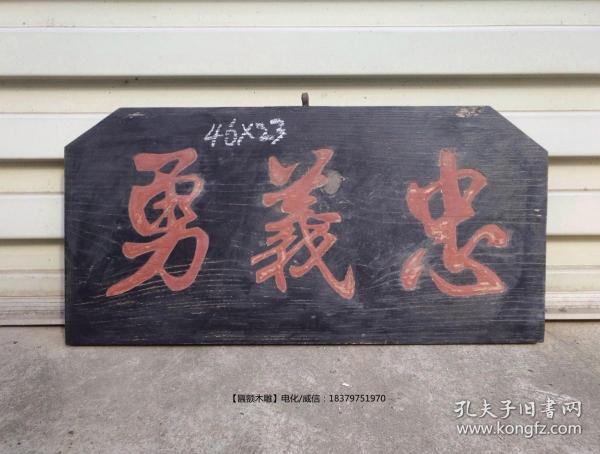 46x23
忠義勇
【匾额木雕】电化/威信：18379751970
孔夫子旧书网
www.kongfz.com